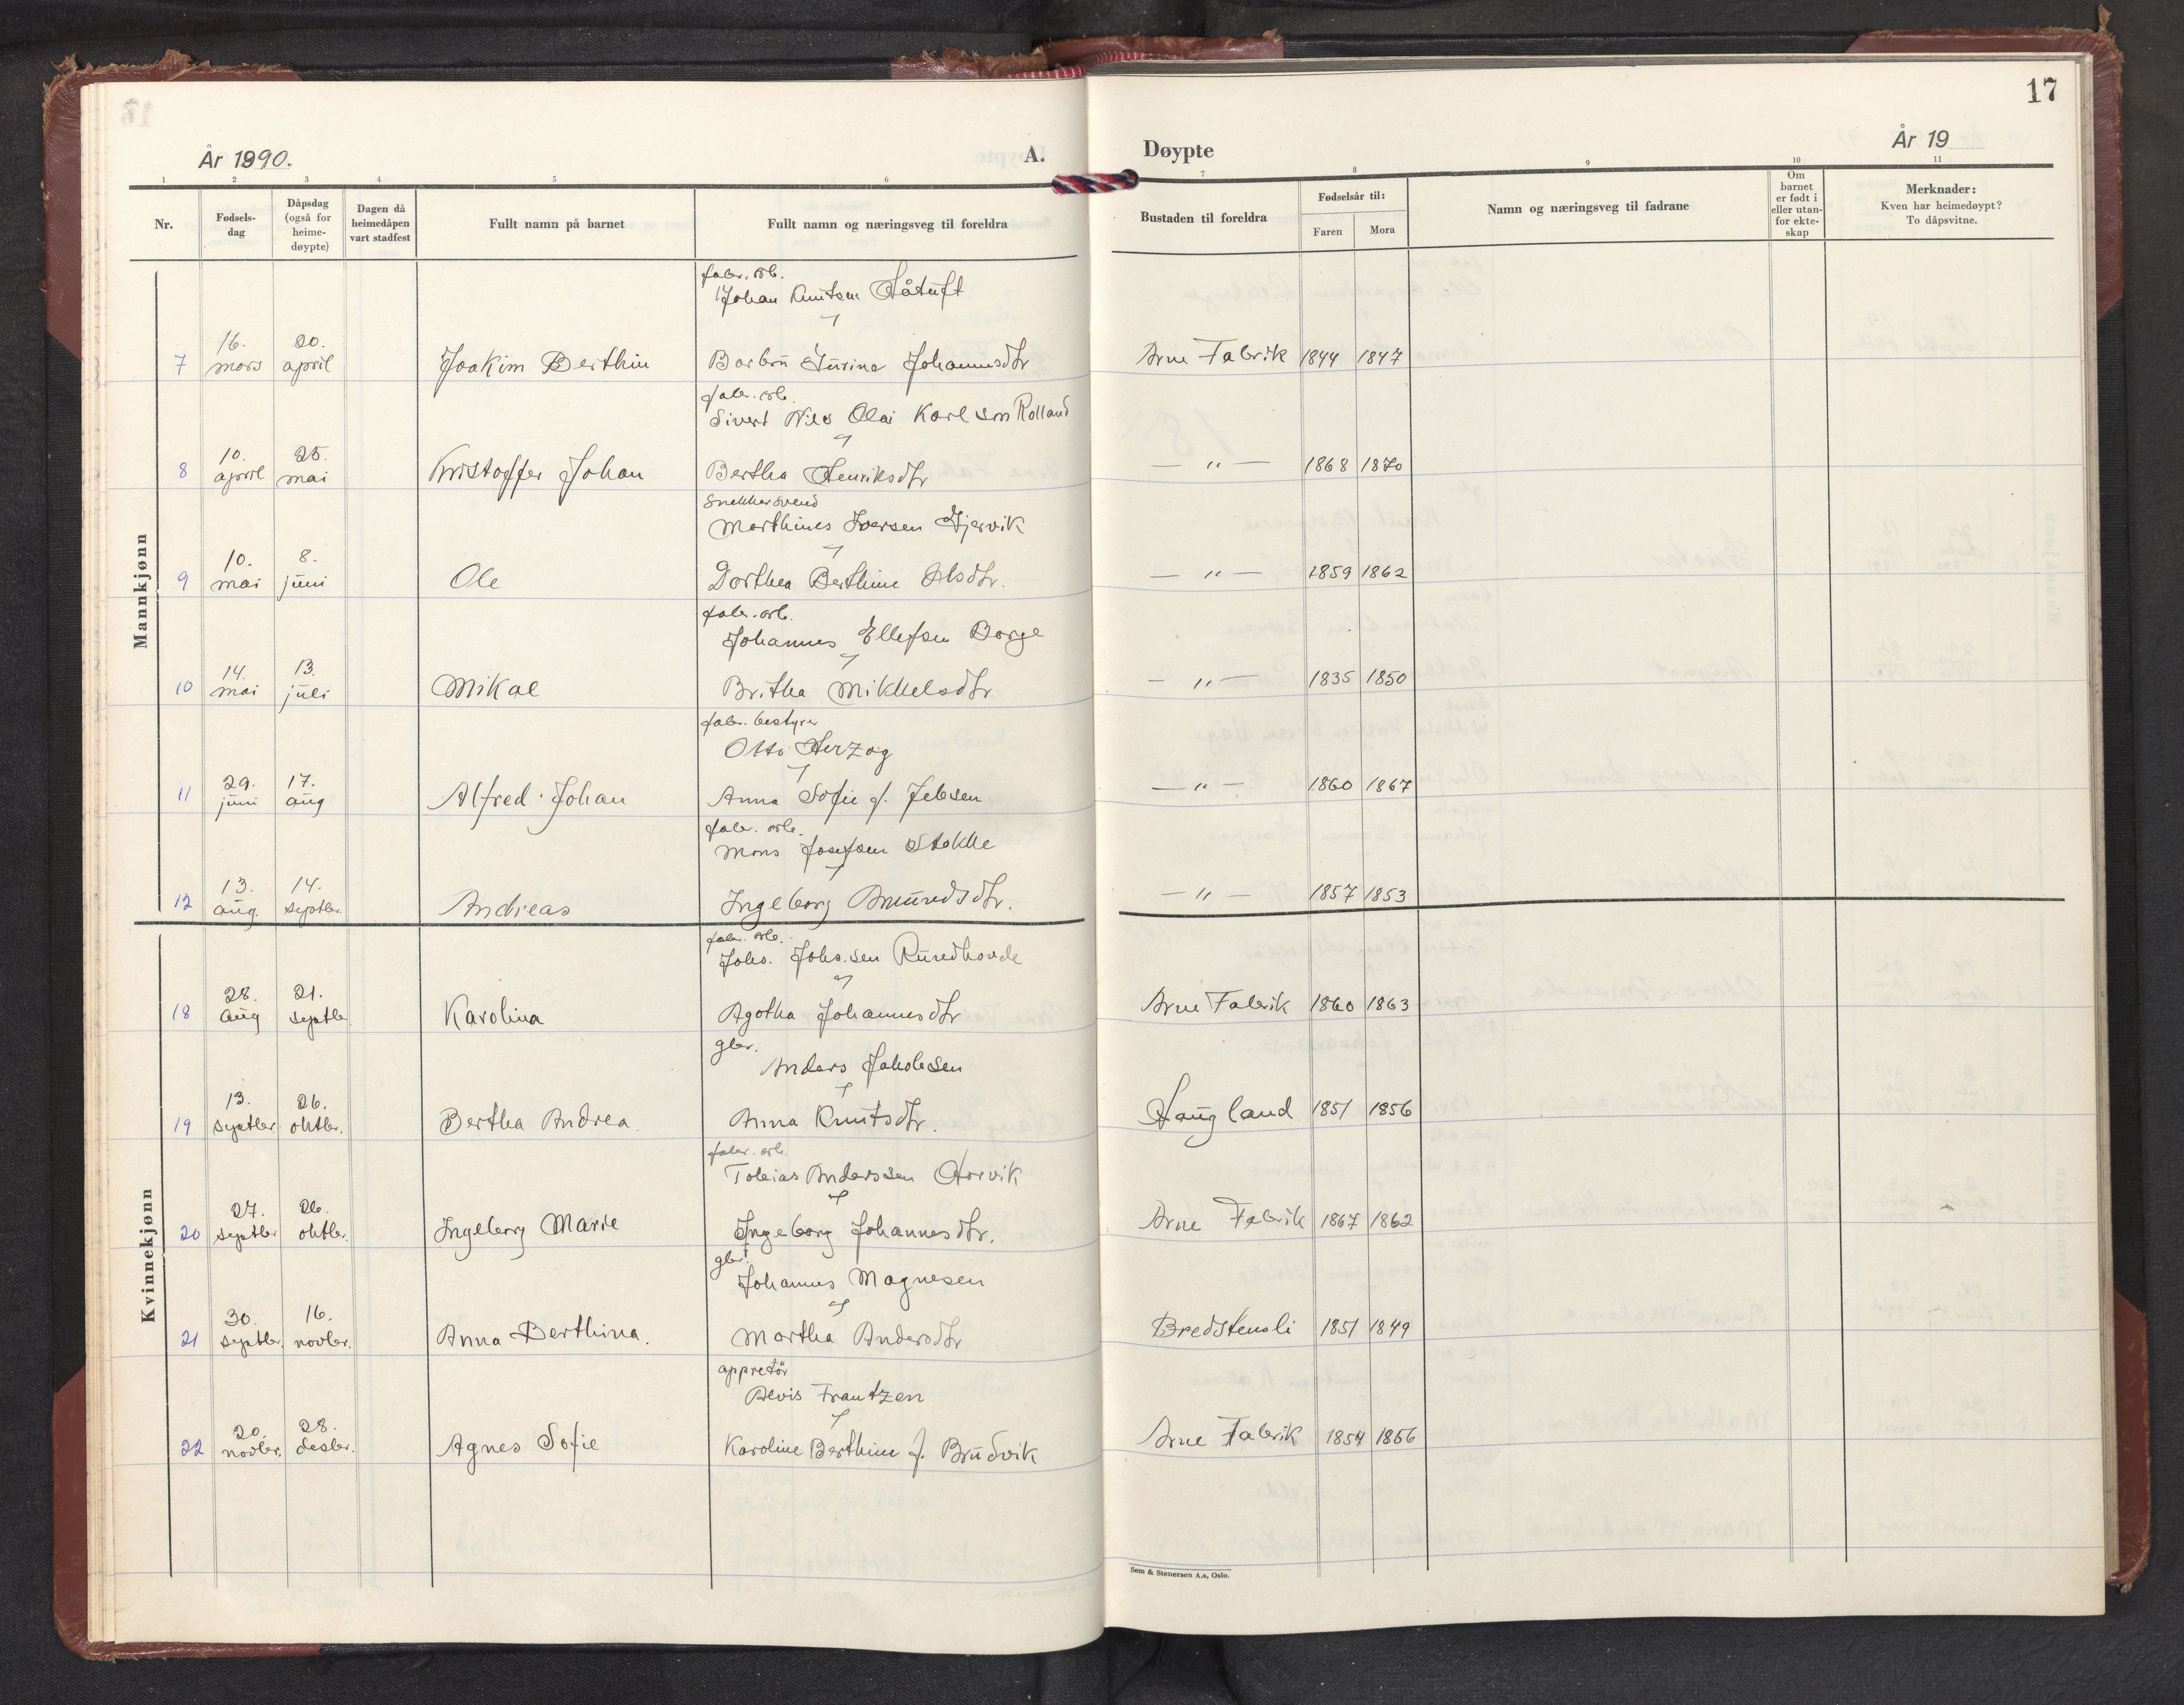 17
År 1890.
A.
Døypte
År 19
1 2 3 4 5 6 7 8 9 10 11
Nr.
Fødsels-
dag
Dåpsdag
(også for
heime-
døypte)
Dagen då
heimedåpen
vart stadfest
Fullt namn på barnet
Fullt namn og næringsveg til foreldra
Bustaden til foreldra
Fødselsår til:
Faren Mora
Namn og næringsveg til fadrane
Om
barnet
er født i
eller utan-
for ekte-
skap
Merknader:
Kven har heimedøypt?
To dåpsvitne.
Mannkjønn
fabr. arb.
Johan Knutsen Håtuft
16. 20.
7 mars april Joakim Berthin Barbru Turina Johannesdtr Arne Fabrik 1844 1847
fabr. arb.
Sivert Nils Olai Karlsen Rolland
10. 25.
8 april mai Kristoffer Johan Bertha Henriksdtr — " — 1868 1870
Snekkersvend
Marthines Iversen Gjervik
10. 8.
9 mai juni Ole Dorthea Berthine Olsdtr. — " — 1859 1862
fabr. arb.
Johannes Ellefsen Borge
14. 13.
10 mai juli Mikal Britha Mikkelsdtr — " — 1835 1850
fabr. bestyrer
Otto Herzog
29. 17.
11 juni aug Alfred Johan Anna Sofie f. Jebsen — " — 1860 1867
fabr. arb.
Mons Josefsen Stokke
13. 14.
12 aug. septbr. Andreas Ingeborg Amundsdtr. — " — 1857 1853
Kvinnekjønn
fabr. arb.
Johs. Johs.sen Rundhovde
28. 21.
18 aug septbr Karolina Agatha Johannesdtr Arne Fabrik 1860 1863
gbr.
Anders Jakobsen
13. 26.
19 septbr oktbr. Bertha Andrea. Anna Knutsdtr. Haugland 1851 1856
fabr. arb.
Tobias Anderssen Horvik
27. 26.
20 septbr oktbr. Ingeborg Marie Ingeborg Johannesdtr. Arne Fabrik 1867 1862
gbr.
Johannes Magnesen
30. 16.
21 septbr. novbr. Anna Berthina. Martha Andersdtr Bredstensli 1851 1849
appretör
Alvis Frantzen
20. 28.
22 novbr. desbr. Agnes Sofie Karoline Berthine f. Brudvik Arne Fabrik 1854 1856
Sem & Stenersen A.s, Oslo.